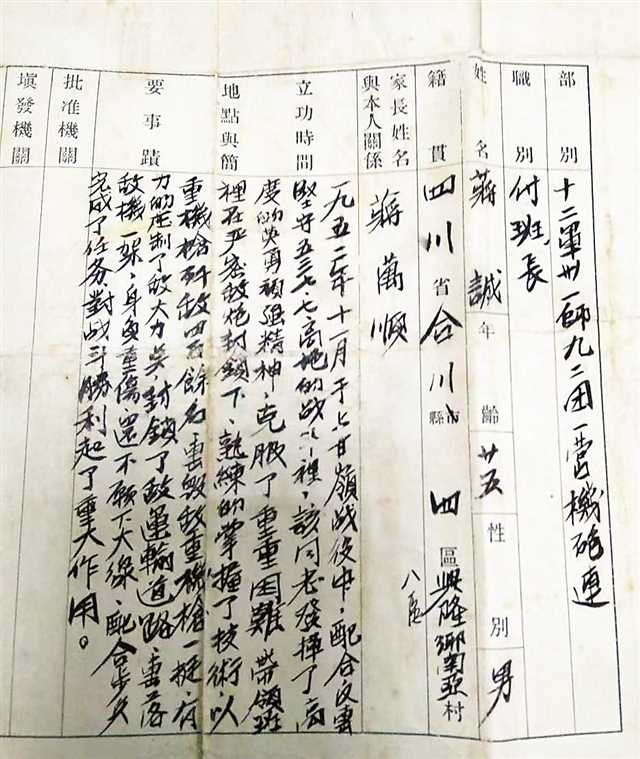 部別 十二軍卅一師九二団一营機砲連
職別 付班長
姓名 蒋誠 年齡 廿五 性別 男
籍貫 四川省合川縣市四區興隆鄉南亞村
八區
家長姓名與本人關係 蒋萬順
立功時間地點與簡要事蹟
一九五二年十一月于上甘嶺战役中,配合反击
堅守五三七.七高地的战斗裡,該同志發揮了高
度的英勇頑强精神,克服了重重困難,带領班
裡在严密敌炮封鎖下,熟練的掌握了技術,以
重機枪歼敌四百餘名,击毁敌重機枪一挺,有
力的压制了敌火力点封鎖了敌運輸道路,击落
敌機一架,身負重傷,還不願下火線,配合步兵
完成了任务對战斗勝利起了重大作用。
批准機關
填發機關